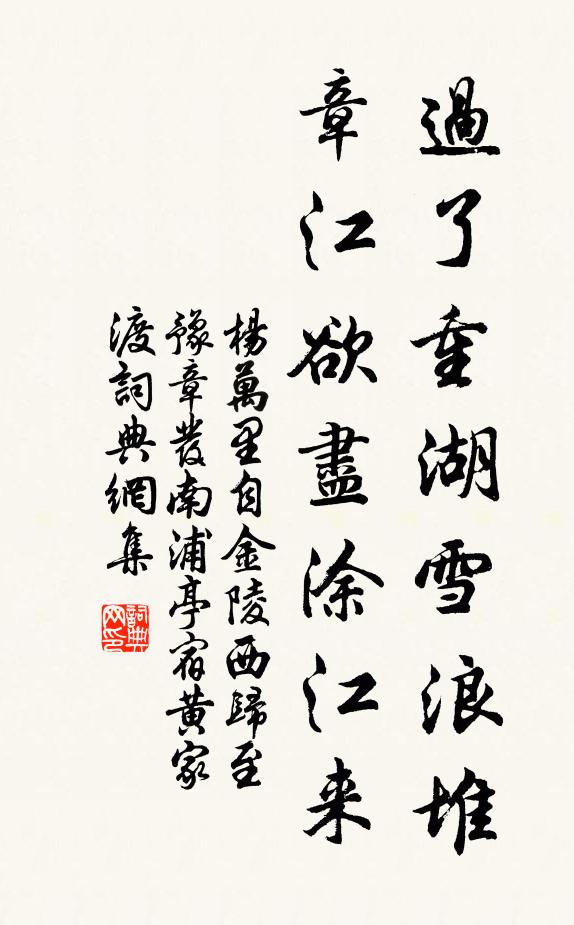 過了重湖雪浪堆
章江欲盡涂江来
楊萬里自金陵西歸至
豫章發南浦亭宿黄家
渡詞典網集
詞典
网印